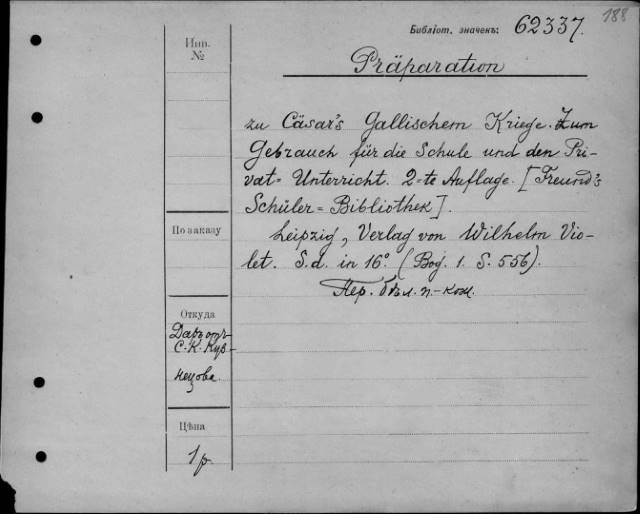 188
Библіот. значекъ: 62337.
Инв.
№
Präparation
zu Cäsar's Gallischem Kriege. Zum
Gebrauch für die Schule und den Pri-
vat= Unterricht. 2=te Auflage. [Freund's
Schüler=Bibliothek].
По заказу
Leipzig, Verlag von Wilhelm Vio-
let. S.d. in 16°. (Bog. 1. S. 556).
Пер. бѣл. п.-кож.
Откуда
Даръ отъ
С.К. Куз-
нецова.
Цѣна
1 р.